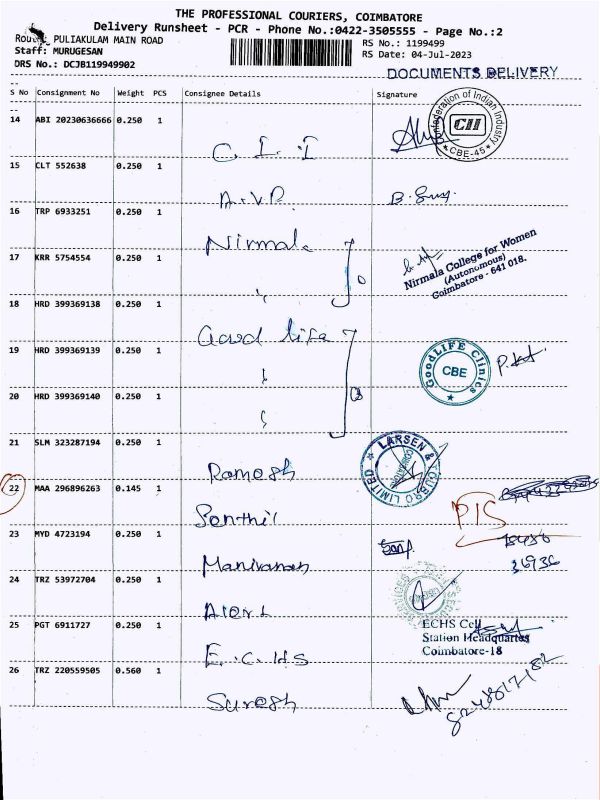 THE PROFESSIONAL COURIERS, COIMBATORE
Delivery Runsheet - PCR - Phone No.:0422-3505555 - Page No.:2
Route: PULIAKULAM MAIN ROAD
RS No.: 1199499
Staff: MURUGESAN
RS Date: 04-Jul-2023
DRS No.: DCJB119949902
DOCUMENTS DELIVERY
S No Consignment No Weight PCS Consignee Details Signature
14 ABI 20230636666 0.250 1
C. I. I
Confederation of Indian Industry
CII
CBE-45
15 CLT 552638 0.250 1
A.V.R
16 TRP 6933251 0.250 1
Nirmala
17 KRR 5754554 0.250 1
Nirmala College for Women
(Autonomous)
Coimbatore - 641 018.
18 HRD 399369138 0.250 1
Good life
19 HRD 399369139 0.250 1
GoodLIFE Clinics
CBE
20 HRD 399369140 0.250 1
21 SLM 323287194 0.250 1
Ramesh
LARSEN & TOUBRO LIMITED
22 MAA 296896263 0.145 1
Senthil
23 MYD 4723194 0.250 1
Manivanan
24 TRZ 53972704 0.250 1
25 PGT 6911727 0.250 1
E.C.H.S
ECHS Cell
Station Headquarters
Coimbatore-18
26 TRZ 220559505 0.560 1
Suresh